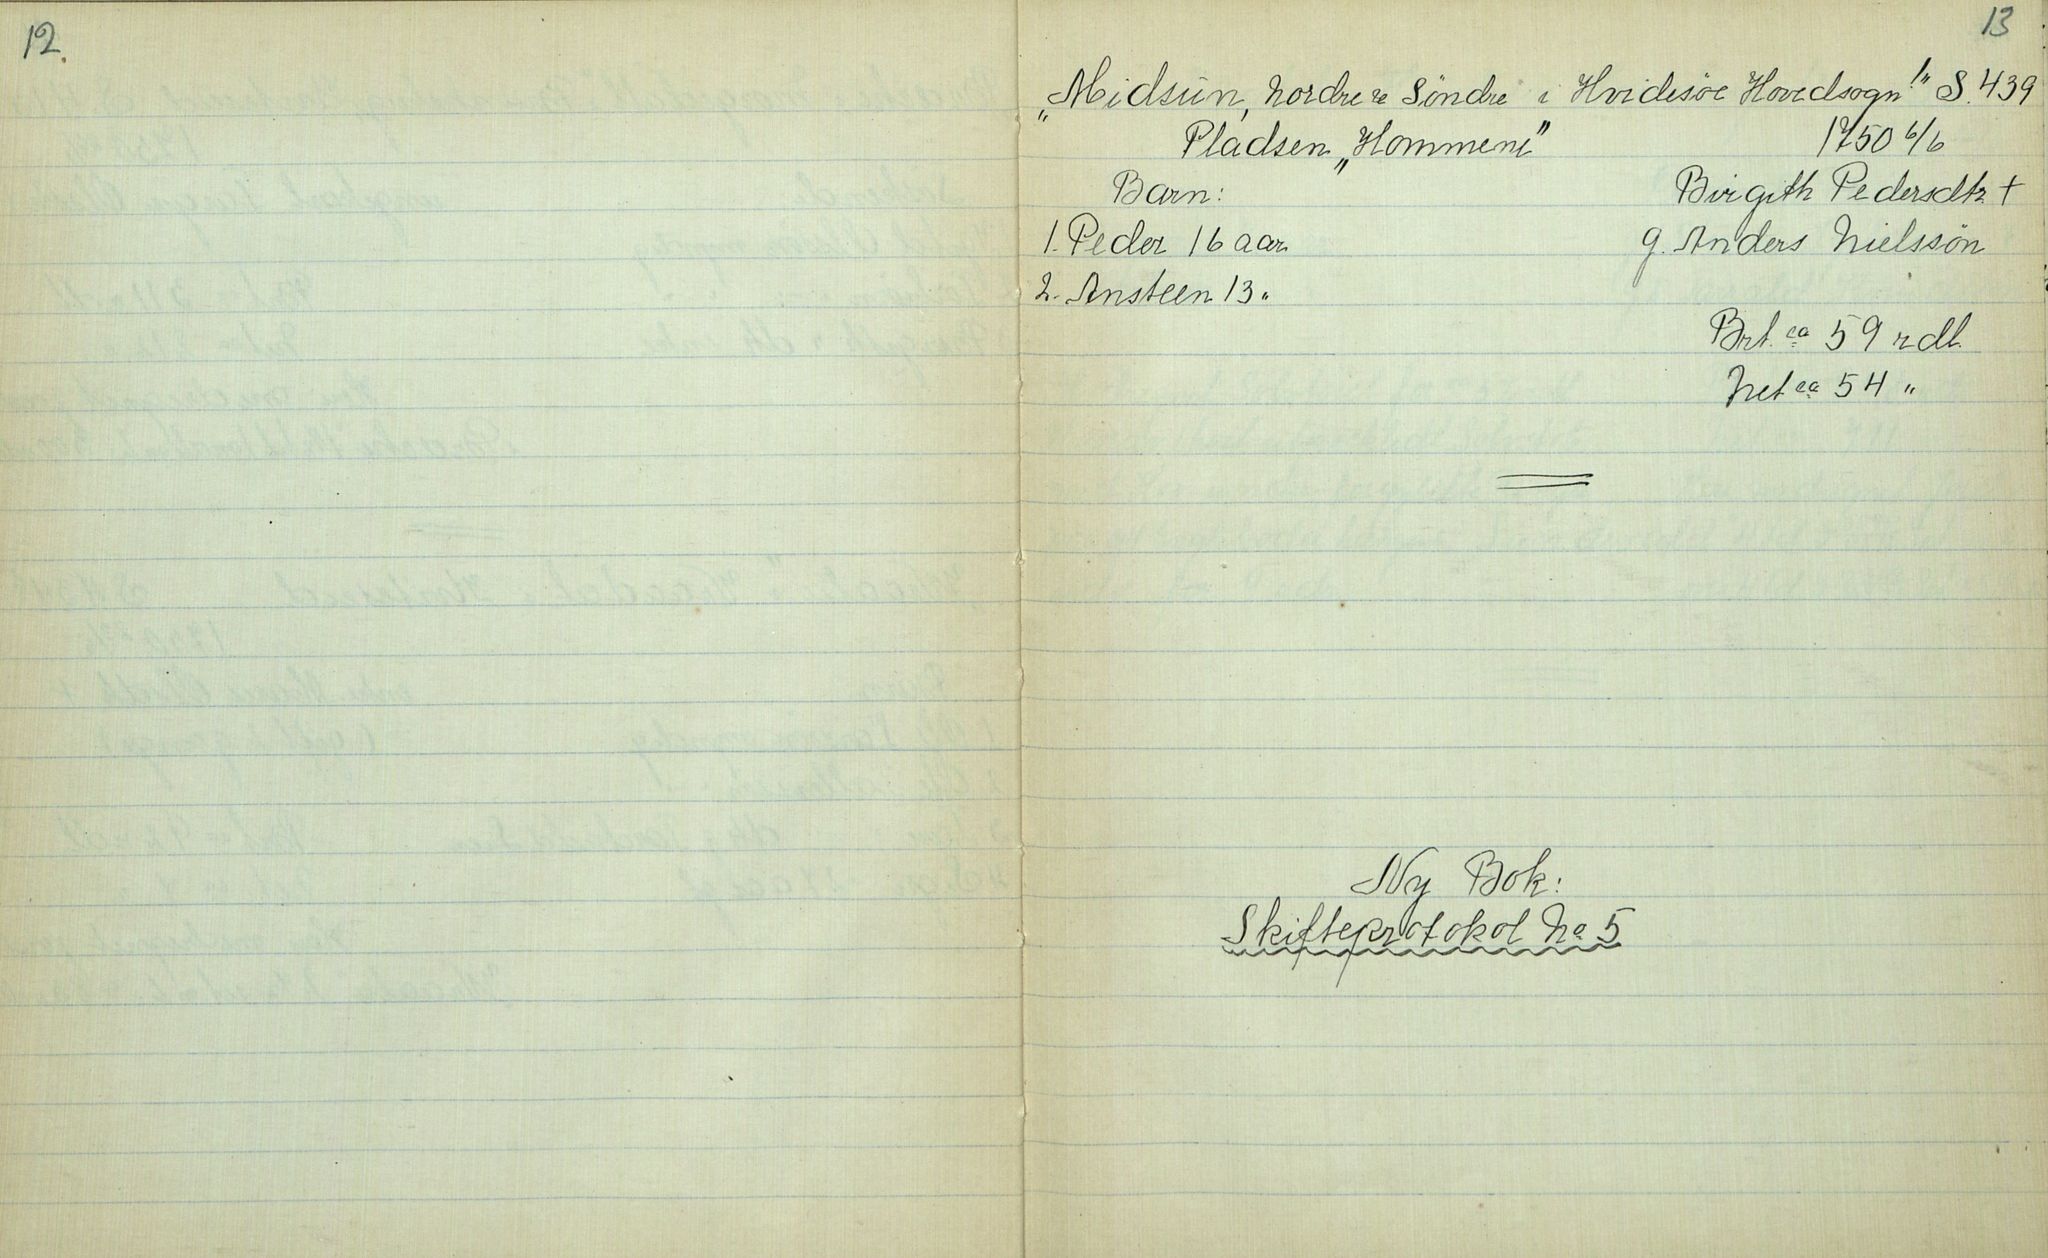 12.
13
„Midsün, Nordre re Söndre i Hvidesöe Hovedsogn!" S. 439
Pladsen „Hommene" 1750 6/6
Barn: Birgith Pedersdtr +
1. Peder 16 aar g. Anders Nielssön
2. Ansteen 13 "
Brt. ca 59 rdl.
Net ca 54 "
Ny Bok:
Skifteprotokol No 5